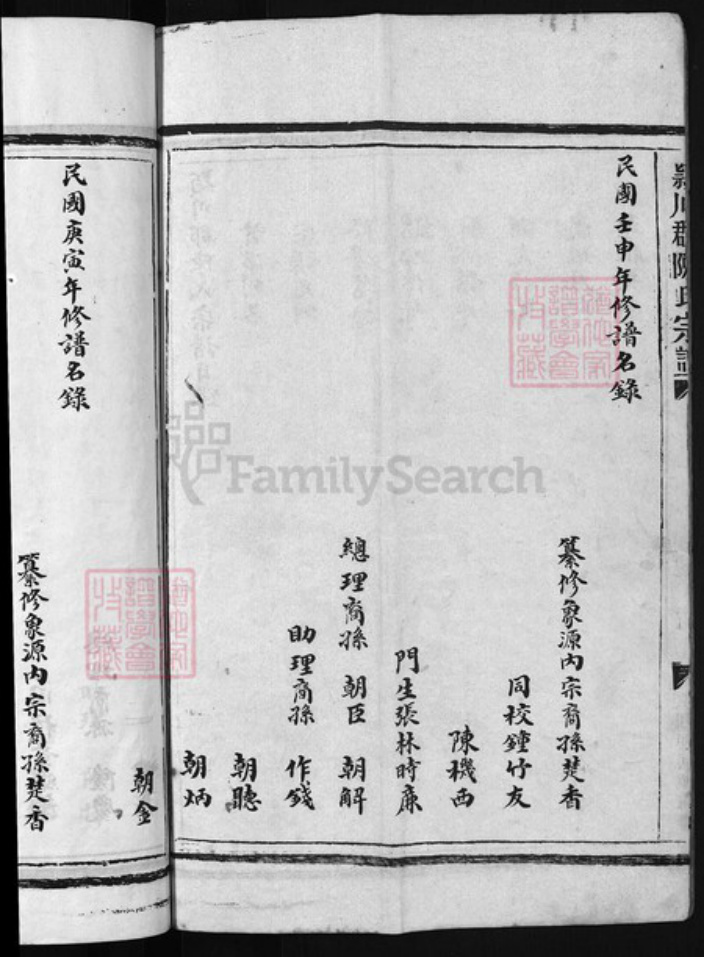 潁川郡陳氏宗譜
民國壬申年修譜名錄
纂修象源內宗裔孫楚香
同校鍾竹友
陳機西
門生張林時廉
總理裔孫 朝臣 朝解
助理裔孫 作錢
朝聽
朝炳
朝金
民國庚寅年修譜名錄
纂修象源內宗裔孫楚香
FamilySearch